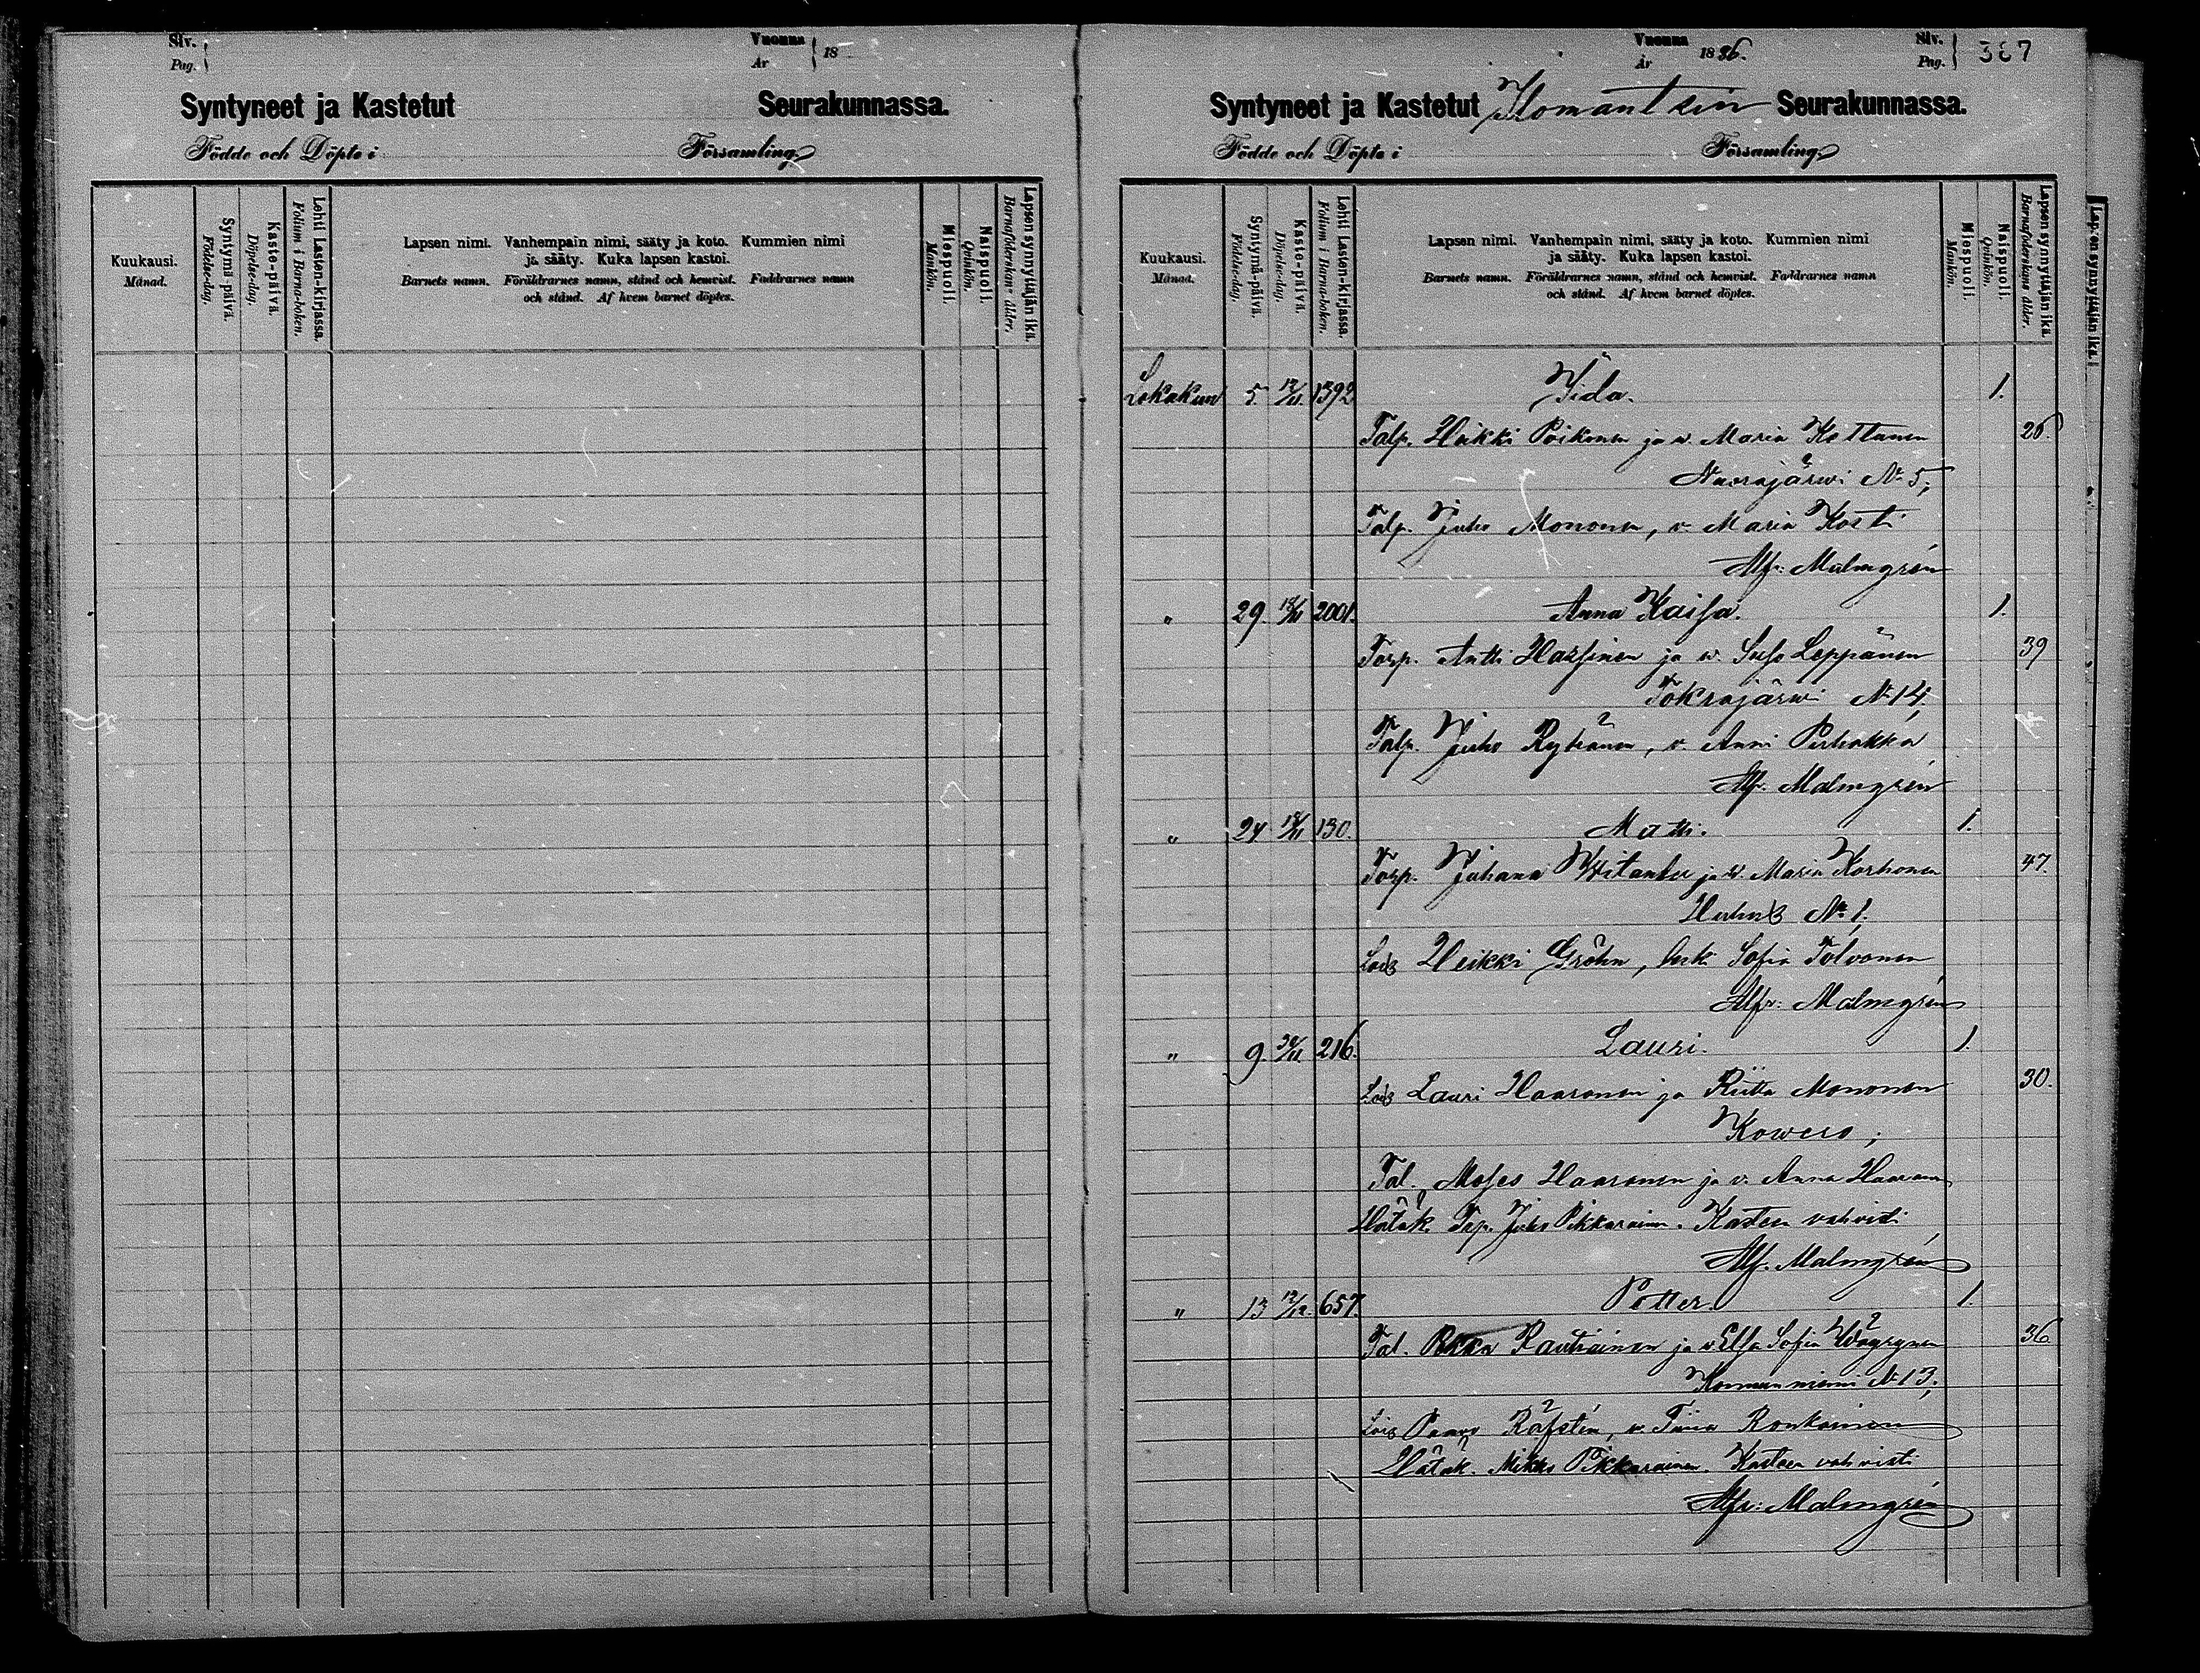 Siv.
Pag.
Vuonna
År
18
Syntyneet ja Kastetut Seurakunnassa.
Födde och Döpte i Församling
Kuukausi.
Månad.
Syntymä-päivä.
Födelse-dag.
Kaste-päivä.
Döpelse-dag.
Lehti Lasten-kirjassa.
Folium i Barna-boken.
Lapsen nimi. Vanhempain nimi, sääty ja koto. Kummien nimi
ja sääty. Kuka lapsen kastoi.
Barnets namn. Föräldrarnes namn, stånd och hemvist. Faddrarnes namn
och stånd. Af hvem barnet döptes.
Miespuoli.
Mankön.
Naispuoli.
Qvinkön.
Lapsen synnyttäjän ikä.
Barnaföderskans ålder.
Vuonna
År
1886.
Siv.
Pag.
387
Syntyneet ja Kastetut Ilomantsin Seurakunnassa.
Födde och Döpte i Församling
Kuukausi.
Månad.
Syntymä-päivä.
Födelse-dag.
Kaste-päivä.
Döpelse-dag.
Lehti Lasten-kirjassa.
Folium i Barna-boken.
Lapsen nimi. Vanhempain nimi, sääty ja koto. Kummien nimi
ja sääty. Kuka lapsen kastoi.
Barnets namn. Föräldrarnes namn, stånd och hemvist. Faddrarnes namn
och stånd. Af hvem barnet döptes.
Miespuoli.
Mankön.
Naispuoli.
Qvinkön.
Lapsen synnyttäjän ikä.
Barnaföderskans ålder.
Lapsen synnyttäjän ikä.
Lokakuu 5. 12/11. 1392 Iida. 1.
Talp. Heikki Poikonen ja v. Maria Kettunen 26.
Nuorajärwi No 5;
Talp. Juho Mononen, v. Maria Kosti
Alfr. Malmgrén
" 29. 18/11 2001. Anna Kaisa. 1.
Torp. Antti Hassinen ja w. Suso Leppänen 39
Tokrajärwi No 14,
Talp. Juho Ryhänen, v. Anni Purhakka
Alfr. Malmgrén
" 24 18/11 130. Matti. 1.
Torp. Juhana ja w. Maria Korhonen 47.
No 1.
Lois Heikki Gröhn, leski Sofia Tolvanen
Alfr. Malmgrén
" 9. 30/11. 216. Lauri. 1.
Lois Lauri Haaranen ja Riitta Mononen 30.
Kowero;
Tal. Moses Haaranen ja v. Anna Haaranen
Hätäk. Tsp. Juho Pikkarainen. Kasteen vahvisti
Alf. Malmgrén
" 13 12/12. 657. Petter. 1.
Tal. Pekka Rautiainen ja v. Elsa Sofia Wäyrynen 36
Kormunniemi No 13;
Lois Paavo Räfstén, v. Tiina Ronkainen
Hätäk. Mikko Pikkarainen. Kasteen vahvisti
Alfr: Malmgrén